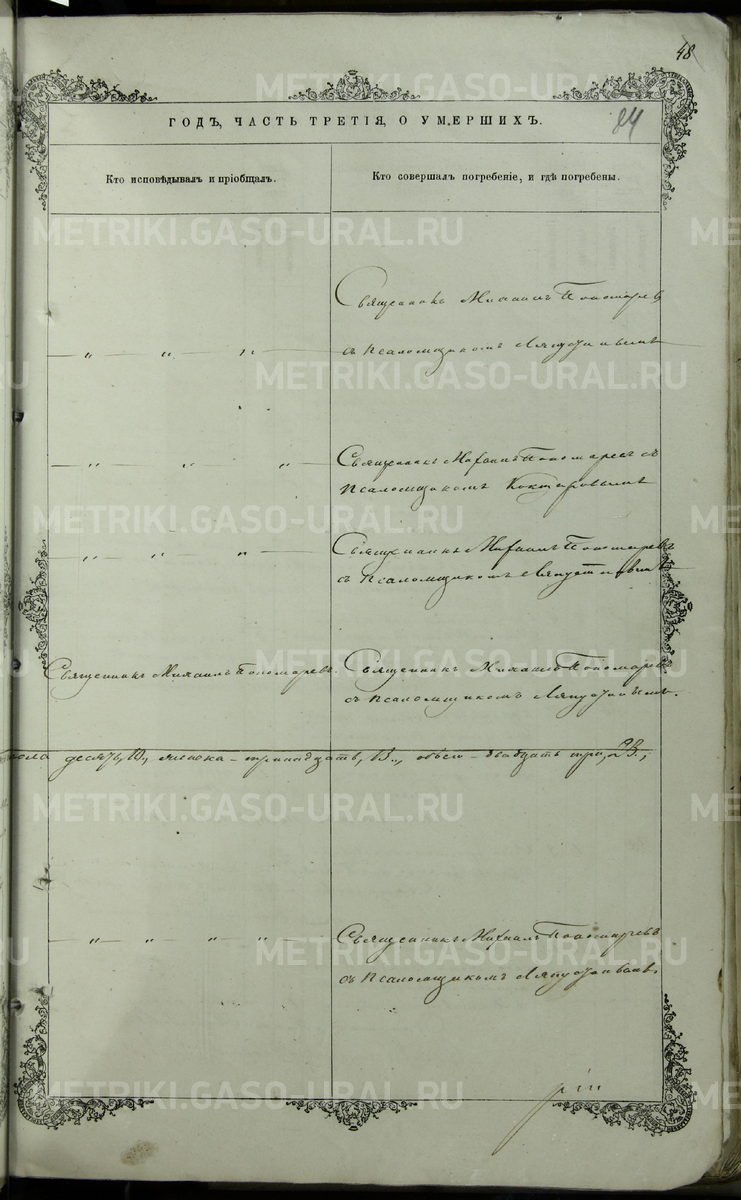 48
84
ГОДЪ, ЧАСТЬ ТРЕТІЯ, О УМЕРШИХЪ.
Кто исповѣдывалъ и пріобщалъ.
Кто совершалъ погребеніе, и гдѣ погребены.
Священникъ Михаилъ Пономаревъ
— „ — „ — „ —
съ Псаломщикомъ Ляпустинымъ
— „ — „ — „ —
Священникъ Михаилъ Пономаревъ съ
Псаломщикомъ
— „ — „ — „ —
Священникъ Михаилъ Пономаревъ
съ Псаломщикомъ Ляпустинымъ
Священникъ Михаилъ Пономаревъ.
Священникъ Михаилъ Пономаревъ
съ Псаломщикомъ Ляпустинымъ.
пола десять, 10, женска - тринадцать, 13., обоего - двадцать три, 23.,
— „ — „ — „ — „ —
Священникъ Михаилъ Пономаревъ
съ Псаломщикомъ Ляпустинымъ.
METRIKI.GASO-URAL.RU